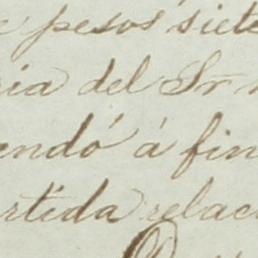 pesos siete
ria del Sr
endó á fin
rtida relac